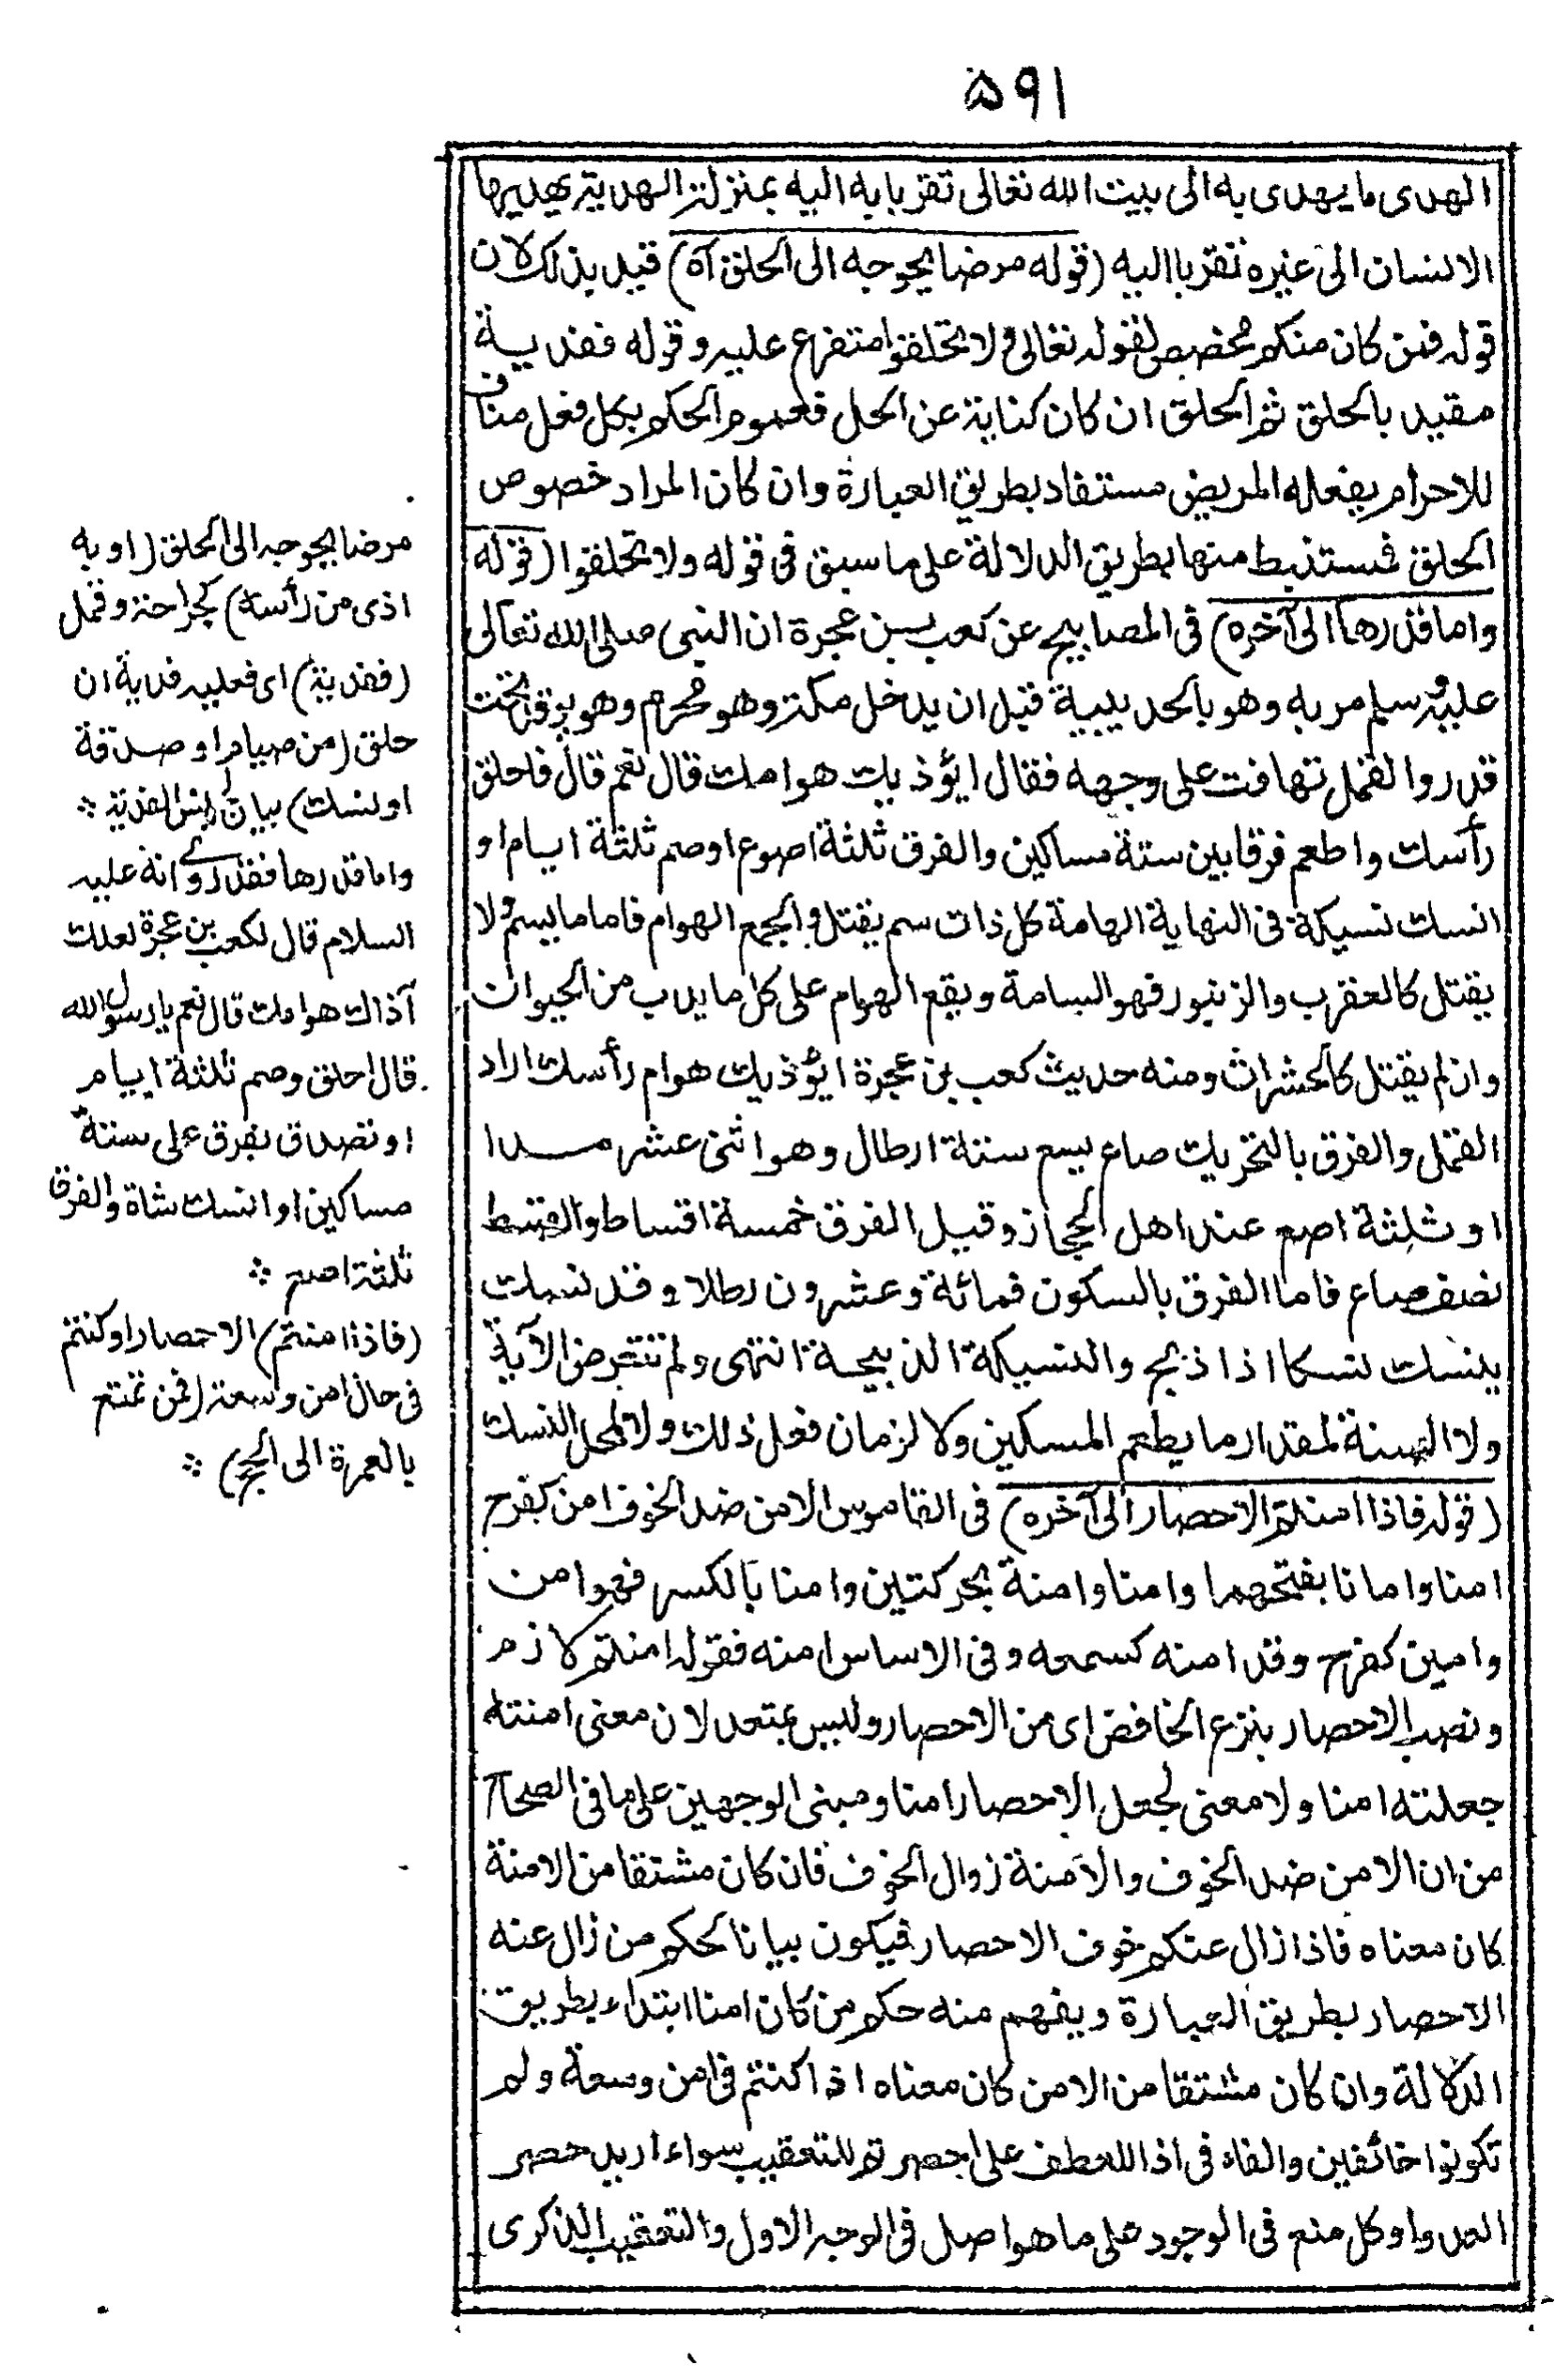 ٥٩١
الهدى ما يهدى به الى بيت الله تعالى تقربا به اليه بمنزلة الهدية يهديها
الانسان الى غيره تقربا اليه (قوله مرضا يحوجه الى الحلق آه) قيد بذلك لان
قوله فمن كان منكم مخصص لقوله تعالى ولا تحلقوا متفرع عليه وقوله ففدية
مقيد بالحلق ثم الحلق ان كان كناية عن الحل فعموم الحكم بكل فعل مناف
للاحرام يفعله المريض مستفاد بطريق العبارة وان كان المراد خصوص
الحلق فمستنبط منها بطريق الدلالة على ما سبق فى قوله ولا تحلقوا (قوله
واما قدرها الى آخره) فى المصابيح عن كعب بن عجرة ان النبى صلى الله تعالى
عليه وسلم مر به وهو بالحديبية قبل ان يدخل مكة وهو محرم وهو يوقد تحت
قدر والقمل تتهافت على وجهه فقال ايؤذيك هوامك قال نعم قال فاحلق
رأسك واطعم فرقا بين ستة مساكين والفرق ثلثة اصوع او صم ثلثة ايام او
انسك نسيكة فى النهاية الهامة كل ذات سم يقتل والجمع الهوام فاما ما يسم ولا
يقتل كالعقرب والزنبور فهو السامة ويقع الهوام على كل ما يدب من الحيوان
وان لم يقتل كالحشرات ومنه حديث كعب بن عجرة ايؤذيك هوام رأسك اراد
القمل والفرق بالتحريك صاع يسع ستة ارطال وهو اثنى عشر مدا
او ثلثة اصع عند اهل الحجاز وقيل الفرق خمسة اقساط والقسط
نصف صاع فاما الفرق بالسكون فمائة وعشرون رطلا وقد نسك
ينسك نسكا اذا ذبح والنسيكة الذبيحة انتهى ولم تتعرض الآية
ولا السنة لمقدار ما يطعم المسكين ولا لزمان فعل ذلك ولا لمحل النسك
(قوله فاذا امنتم الاحصار الى آخره) فى القاموس الامن ضد الخوف امن كفرح
امنا وامانا بفتحهما وامنا وامنة بحركتين وامنا بالكسر فهو امن
وامين كفرح وقد امنه كسمعه وفى الاساس امنه فقوله امنتم لازم
ونصب الاحصار بنزع الخافض اى من الاحصار وليس بمتعد لان معنى امنته
جعلته امنا ولا معنى لجعل الاحصار امنا ومبنى الوجهين على ما فى الصحاح
من ان الامن ضد الخوف والامنة زوال الخوف فان كان مشتقا من الامنة
كان معناه فاذا زال عنكم خوف الاحصار فيكون بيانا لحكم من زال عنه
الاحصار بطريق العبارة ويفهم منه حكم من كان امنا ابتداء بطريق
الدلالة وان كان مشتقا من الامن كان معناه اذا كنتم فى امن وسعة ولم
تكونوا خائفين والفاء فى اذا للعطف على احصرتم للتعقيب سواء اريد حصر
العدو او كل منع فى الوجود على ما هو اصل فى الوجه الاول والتعقيب الذكرى
مرضا يحوجه الى الحلق (او به
اذى من رأسه) كجراحة وقمل
(ففدية) اى فعليه فدية ان
حلق (من صيام او صدقة
او نسك) بيان لجنس الفدية
واما قدرها فقد روى انه عليه
السلام قال لكعب بن عجرة لعلك
آذاك هوامك قال نعم يا رسول الله
قال احلق وصم ثلثة ايام
او تصدق بفرق على ستة
مساكين او انسك شاة والفرق
ثلثة اصع
(فاذا امنتم) الاحصار او كنتم
فى حال امن وسعة (فمن تمتع
بالعمرة الى الحج)